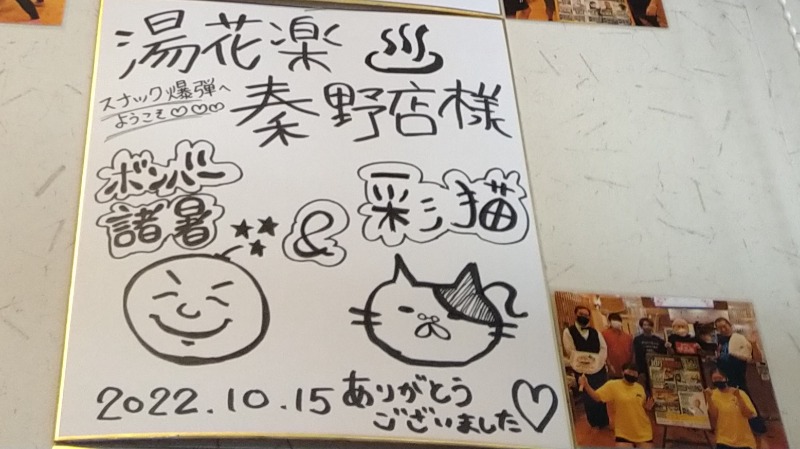 湯花楽 ♨
スナック爆弾へ
ようこそ♡♡♡
秦野店様
ボンバー
諸暑
&
彩猫
2022.10.15 ありがとう
ございました♡